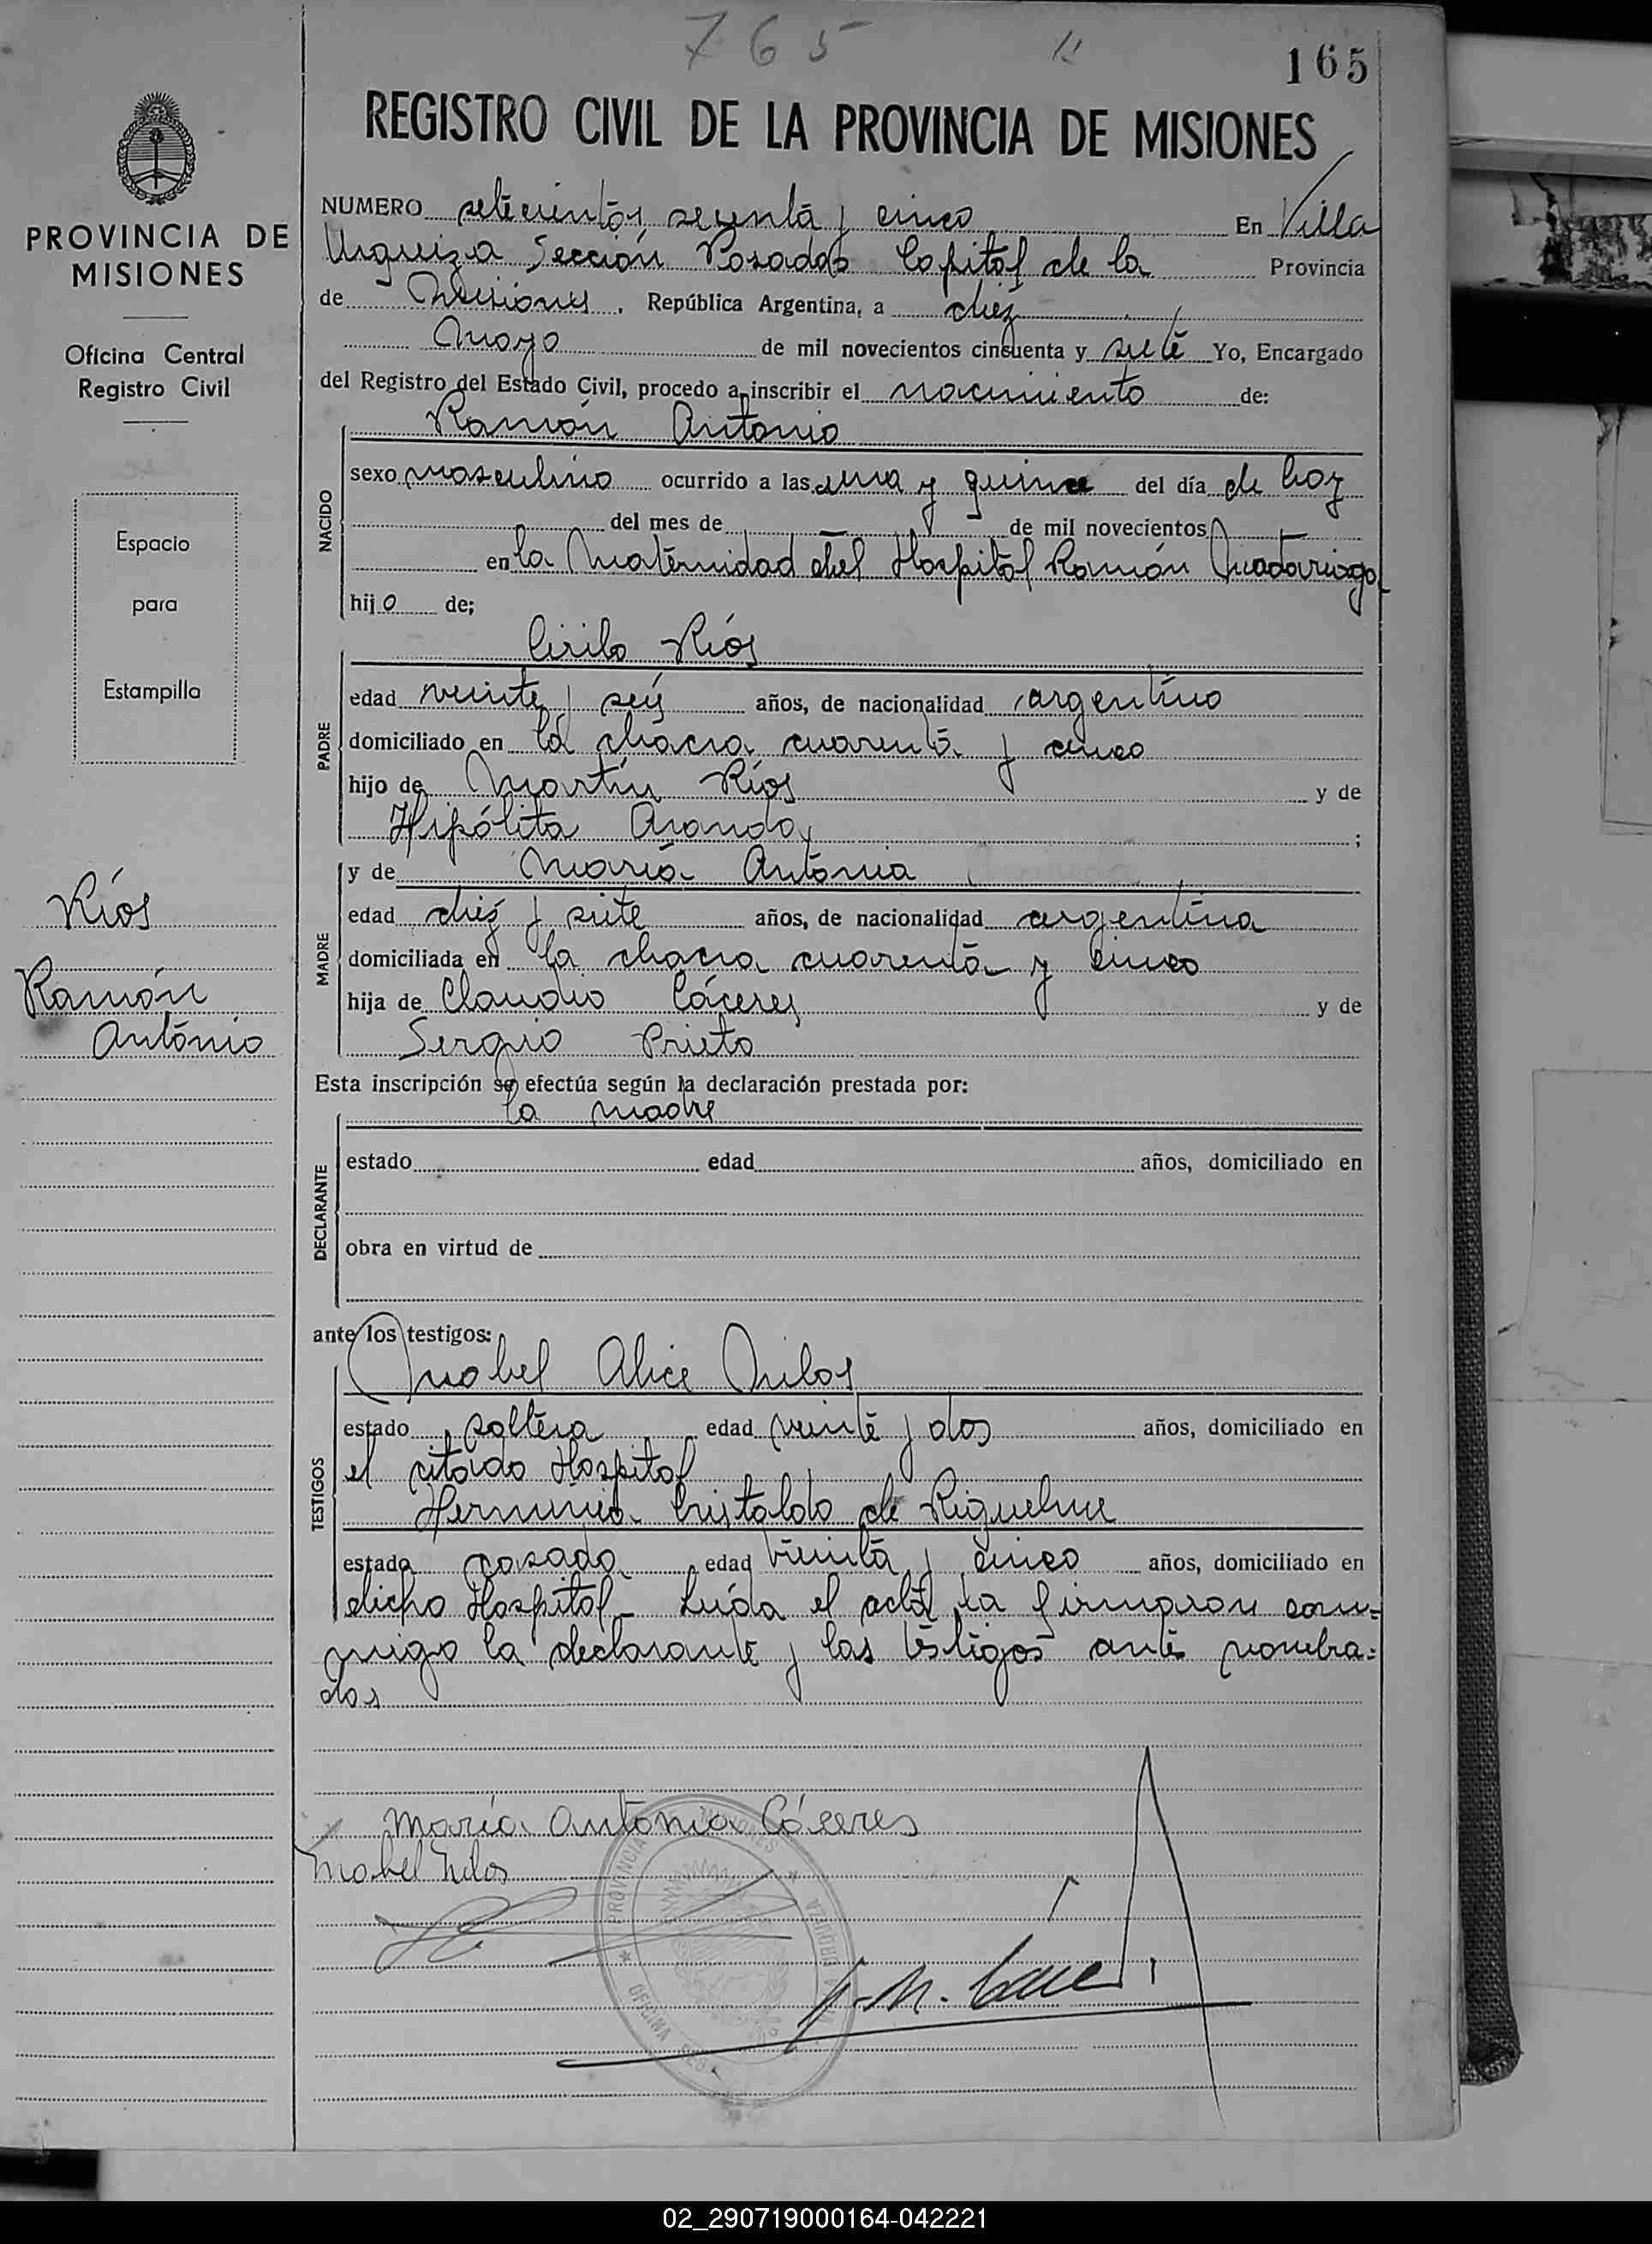 765
165
REGISTRO CIVIL DE LA PROVINCIA DE MISIONES
PROVINCIA DE
MISIONES
Oficina Central
Registro Civil
Espacio
para
Estampilla
Ríos
Ramón
Antonio
NUMERO setecientos sesenta y cinco En Villa
Urquiza Sección Posadas Capital de la Provincia
de Misiones, República Argentina, a diez
Mayo de mil novecientos cincuenta y siete Yo, Encargado
del Registro del Estado Civil, procedo a inscribir el nacimiento de:
NACIDO
Ramón Antonio
sexo masculino ocurrido a las una y quince del día de hoy
del mes de de mil novecientos
en la Maternidad del Hospital Ramón Madariaga
hijo de;
PADRE
Cirilo Ríos
edad veinte y seis años, de nacionalidad argentino
domiciliado en la chacra cuarenta y cinco
hijo de Martín Ríos y de
Hipólita Aranda ;
MADRE
y de María Antonia
edad diez y siete años, de nacionalidad argentina
domiciliada en la chacra cuarenta y cinco
hija de Claudio Cáceres y de
Sergia Prieto
Esta inscripción se efectúa según la declaración prestada por:
DECLARANTE
la madre
estado edad años, domiciliado en
obra en virtud de
ante los testigos:
TESTIGOS
Mabel Alice Milos
estado soltera edad veinte y dos años, domiciliado en
el citado Hospital
Herminia Cristaldo de Riquelme
estado casada edad treinta y cinco años, domiciliado en
dicho Hospital - Leída el acta la firmaron con=
migo la declarante y las testigos ante nombra=
dos
María Antonia Cáceres
Mabel Milos
PROVINCIA
OFICINA
02_290719000164-042221